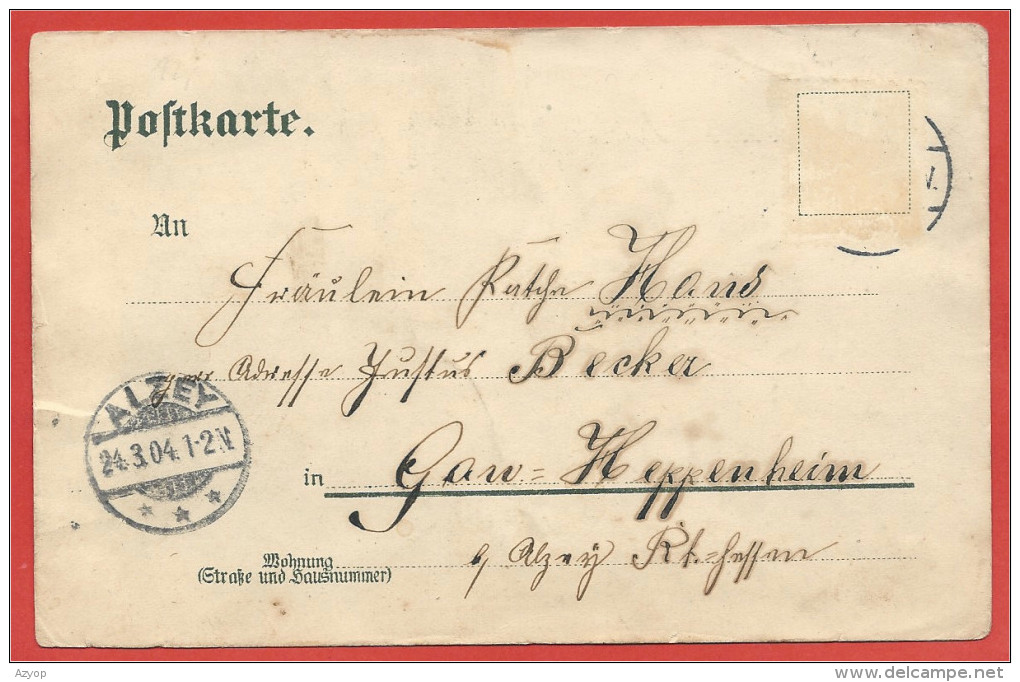 Postkarte.
An
Fräulein Kätche Hans
per Adresse Justus Becker
ALZEY
24.3.04.1-2N.
in Gau=Heppenheim
b/ Alzey Rh.=Hessen
Wohnung
(Straße und Hausnummer)
Azyop
www.delcampe.net